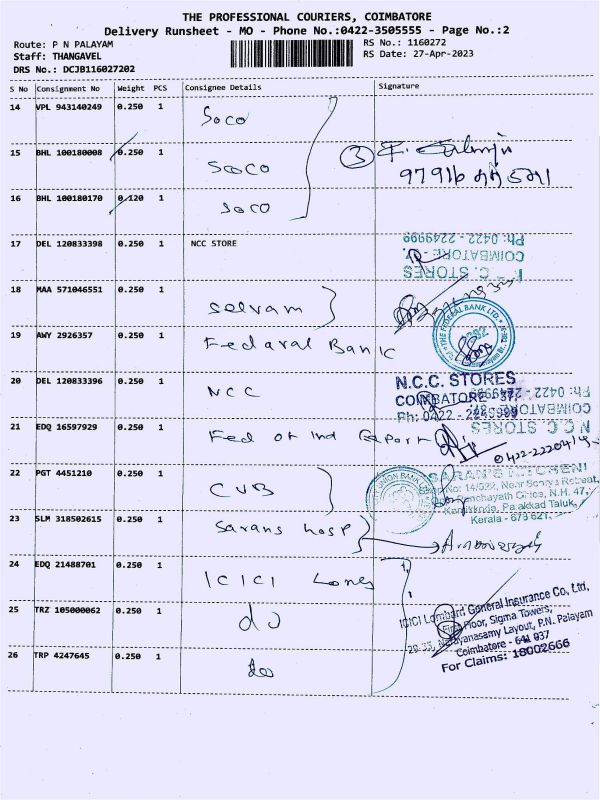 THE PROFESSIONAL COURIERS, COIMBATORE
Delivery Runsheet - MO - Phone No.:0422-3505555 - Page No.:2
Route: P N PALAYAM
RS No.: 1160272
Staff: THANGAVEL
RS Date: 27-Apr-2023
DRS No.: DCJB116027202
S No Consignment No Weight PCS Consignee Details Signature
14 VPL 943140249 0.250 1 Soco
15 BHL 100180008 0.250 1 Soco
3
97916
16 BHL 100180170 0.120 1 Soco
17 DEL 120833398 0.250 1 NCC STORE
N.C.C. STORES
COIMBATORE - 37.
Ph: 0422 - 2249999
18 MAA 571046551 0.250 1 Selvam
19 AWY 2926357 0.250 1 Fedaral Bank
THE FEDERAL BANK LTD.
20 DEL 120833396 0.250 1 NCC
N.C.C. STORES
COIMBATORE - 37.
Ph: 0422 - 2249999
N.C.C. STORES
COIMBATORE
Ph: 0422 - 2249999
21 EDQ 16597929 0.250 1 Fed of Ind Export
22 PGT 4451210 0.250 1 CUB
UNION BANK
SARAN'S KITCHEN
No: 14/522, Near Retreat,
Panchayath Office, N.H. 47,
Palakkad Taluk,
Kerala - 678 621.
23 SLM 318502615 0.250 1 Sarans hosp
24 EDQ 21488701 0.250 1 ICICI Lom
25 TRZ 105000062 0.250 1 do
ICICI Lombard General Insurance Co, Ltd,
Floor, Sigma Towers,
29-35, Narayanasamy Layout, P.N. Palayam
Coimbatore - 641 037
For Claims: 18002666
26 TRP 4247645 0.250 1 do